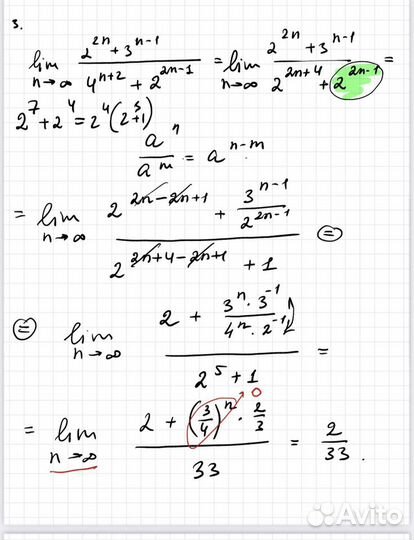 3.
lim n→∞ (2^(2n) + 3^(n-1)) / (4^(n+2) + 2^(2n-1)) = lim n→∞ (2^(2n) + 3^(n-1)) / (2^(2n+4) + 2^(2n-1)) =
2^7 + 2^4 = 2^4(2^3+1)
a^n / a^m = a^(n-m)
= lim n→∞ (2^(2n-2n+1) + 3^(n-1) / 2^(2n-1)) / (2^(2n+4-2n+1) + 1) =
= lim n→∞ (2 + (3^n · 3^(-1)) / (4^n · 2^(-1))) / (2^5 + 1) =
= lim n→∞ (2 + (3/4)^n → 0 · 2/3) / 33 = 2/33.
Avito